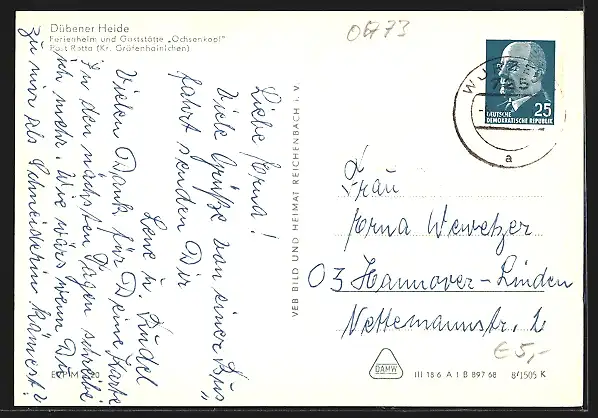 Dübener Heide
Ferienheim und Gaststätte „Ochsenkopf"
Post Rotta (Kr. Gräfenhainichen)
0673
WURZEN
725
a
25
DEUTSCHE
DEMOKRATISCHE REPUBLIK
Liebe Erna!
Viele Grüße von einer Aus„
fahrt senden Dir
Lene u. Rudel
Vielen Dank für Deine Karte
In den nächsten Tagen schreibe
ich mehr. Wie wärs wenn Du
zu mir als Schneiderin kämest?
VEB BILD UND HEIMAT REICHENBACH I. V.
Frau
Erna Wewetzer
03 Hannover-Linden
Nettemannstr. 2
€ 5,-
EVP M
DAMW
III 18 6 A 1 B 897 68
8/1505 K